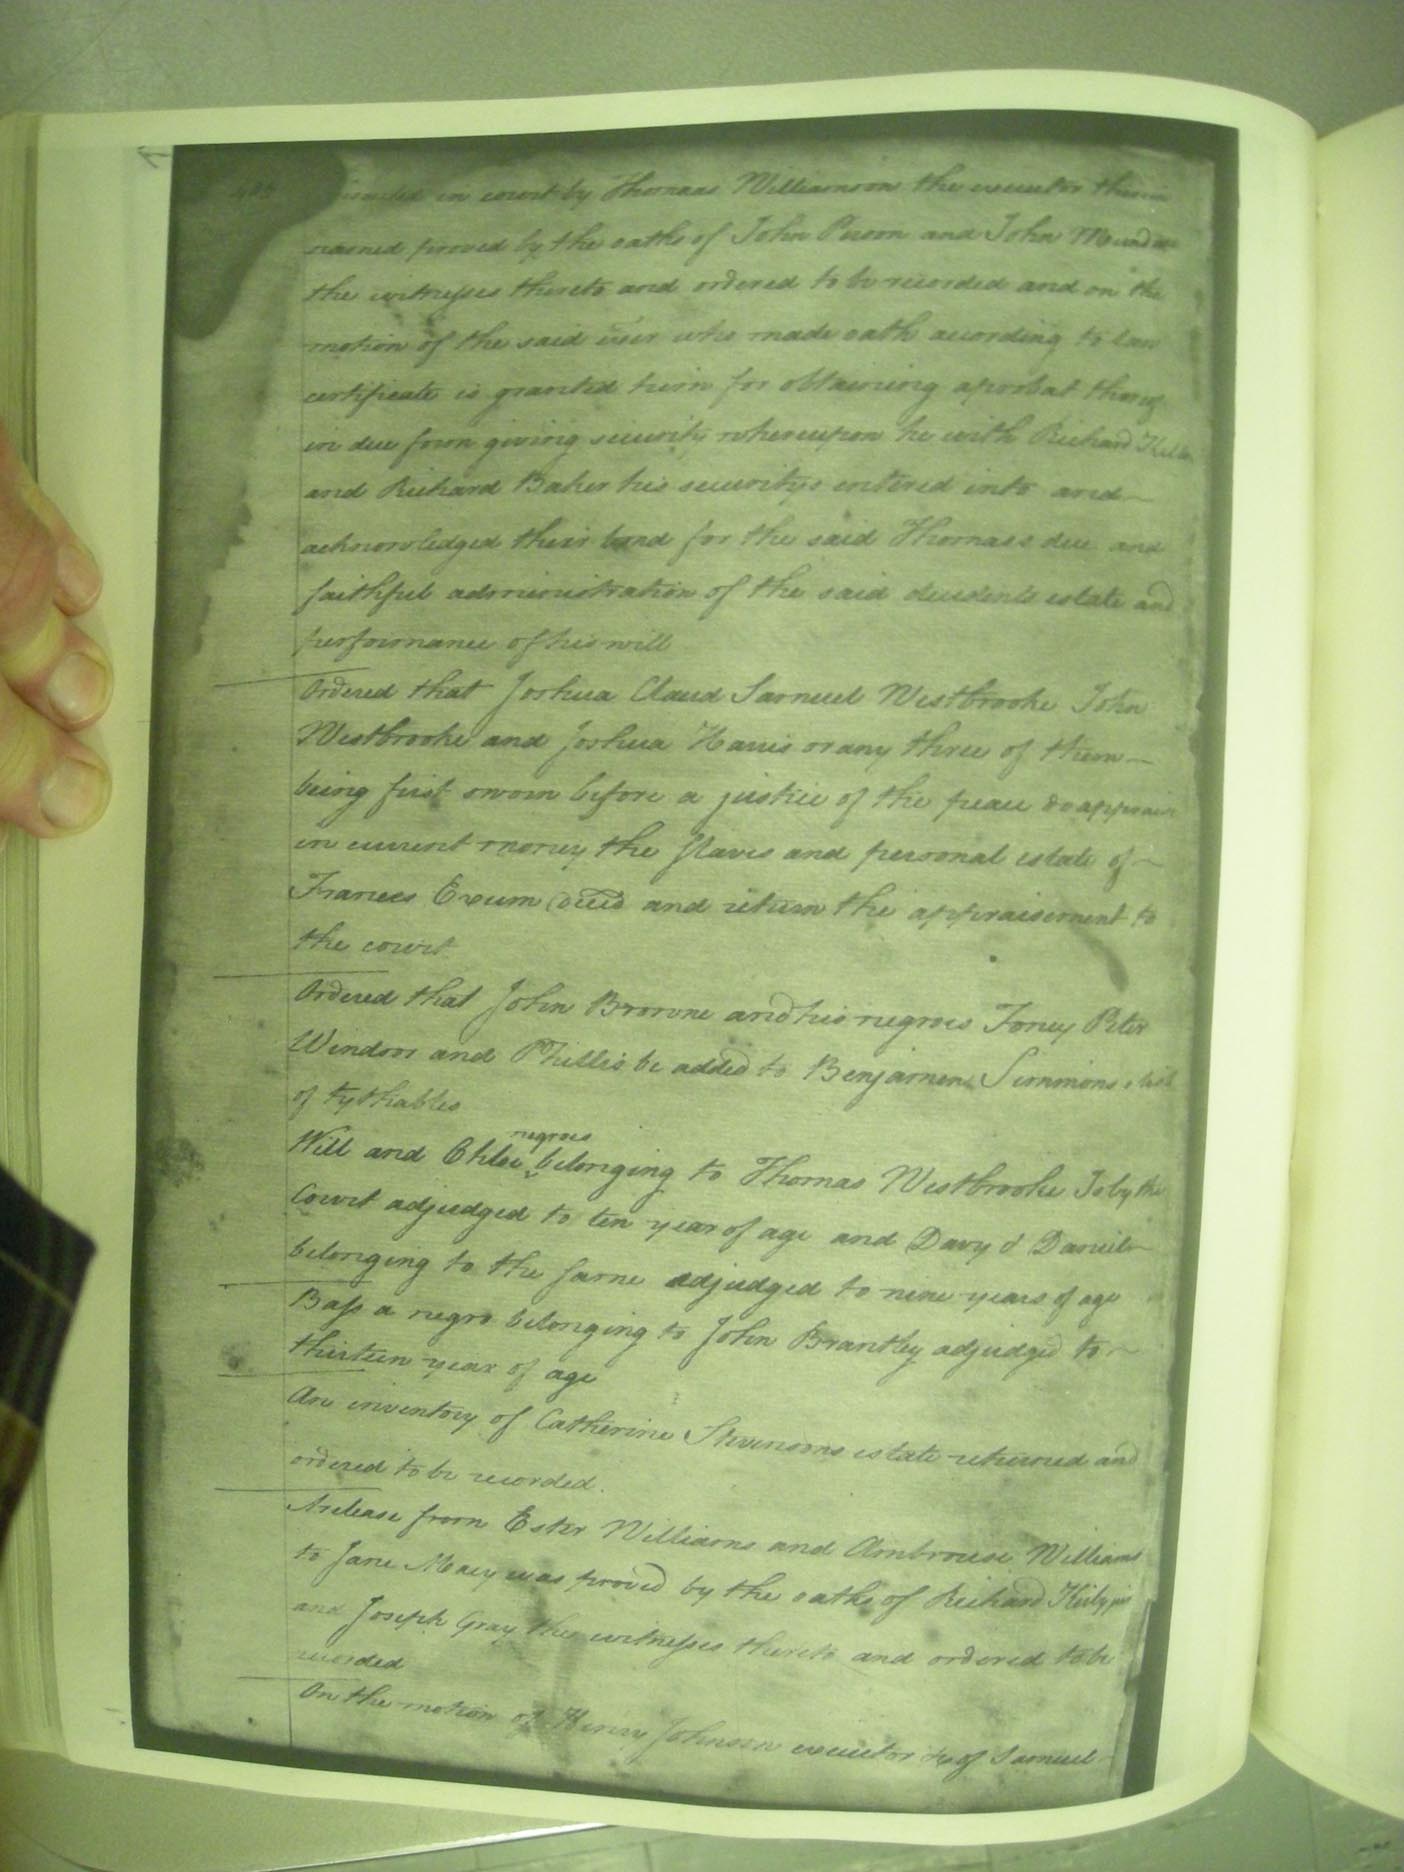 in court by Thomas Williamson the executor therein
named proved by the oaths of John Person and John
the witnesses thereto and ordered to be recorded and on the
motion of the said exor who made oath according to law
certificate is granted him for obtaining a probat thereof
in due form giving security whereupon he with Richard
and Richard Baker his securitys entered into and
acknowledged their bond for the said Thomass due and
faithful administration of the said decedents estate and
performance of his will
Ordered that Joshua Claud Samuel Westbrooke John
Westbrooke and Joshua Harris or any three of them
being first sworn before a justice of the peace do appraise
in current money the slaves and personal estate of
Frances Exum decd and return the appraisement to
the court
Ordered that John Browne and his negroes Toney Peter
Windsor and Phillis be added to Benjamen Simmons list
of tythables
negroes
Will and Chloe belonging to Thomas Westbrooke by the
Court adjudged to ten year of age and Davy & Daniel
belonging to the same adjudged to nine years of age
Bass a negro belonging to John Brantley adjudged to
thirteen year of age
An inventory of Catherine Stevensons estate returned and
ordered to be recorded.
A release from Ester Williams and Ambrouse Williams
to Jane Macy was proved by the oaths of Richard Kirby jun
and Joseph Gray the witnesses thereto and ordered to be
recorded
On the motion of Henry Johnson executor &c of Samuel